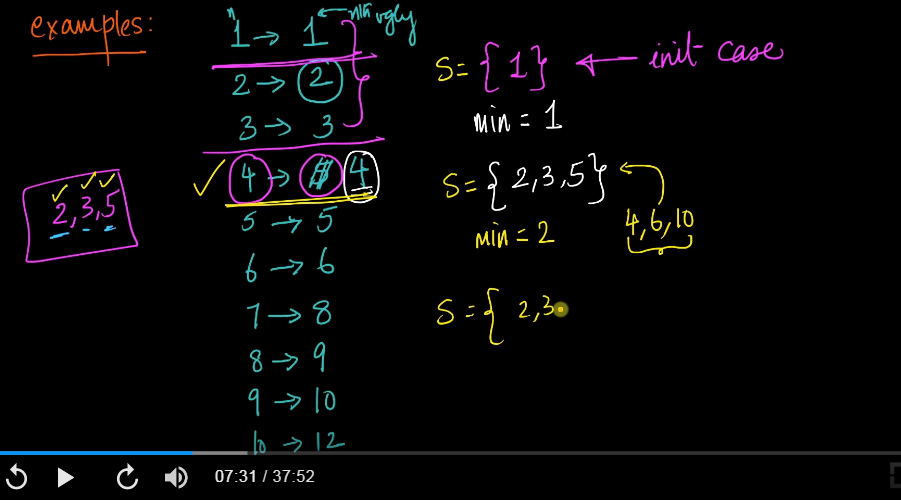 examples:
n nth ugly
1 → 1
2 → 2
3 → 3
4 → 4
5 → 5
6 → 6
7 → 8
8 → 9
9 → 10
10 → 12
2, 3, 5
S = { 1 } ← init case
min = 1
S = { 2, 3, 5 }
4, 6, 10
min = 2
S = { 2, 3
07:31 / 37:52